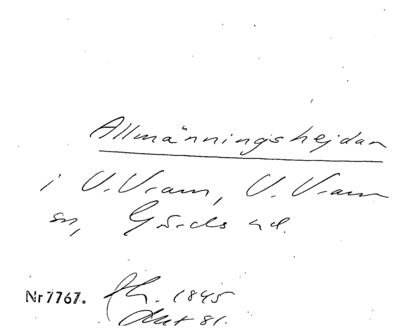 Allmänningshejdan
i V. Vram, V. Vram
sn, Gärds hd.
Nr 7767. fh. 1845
Akt 81.